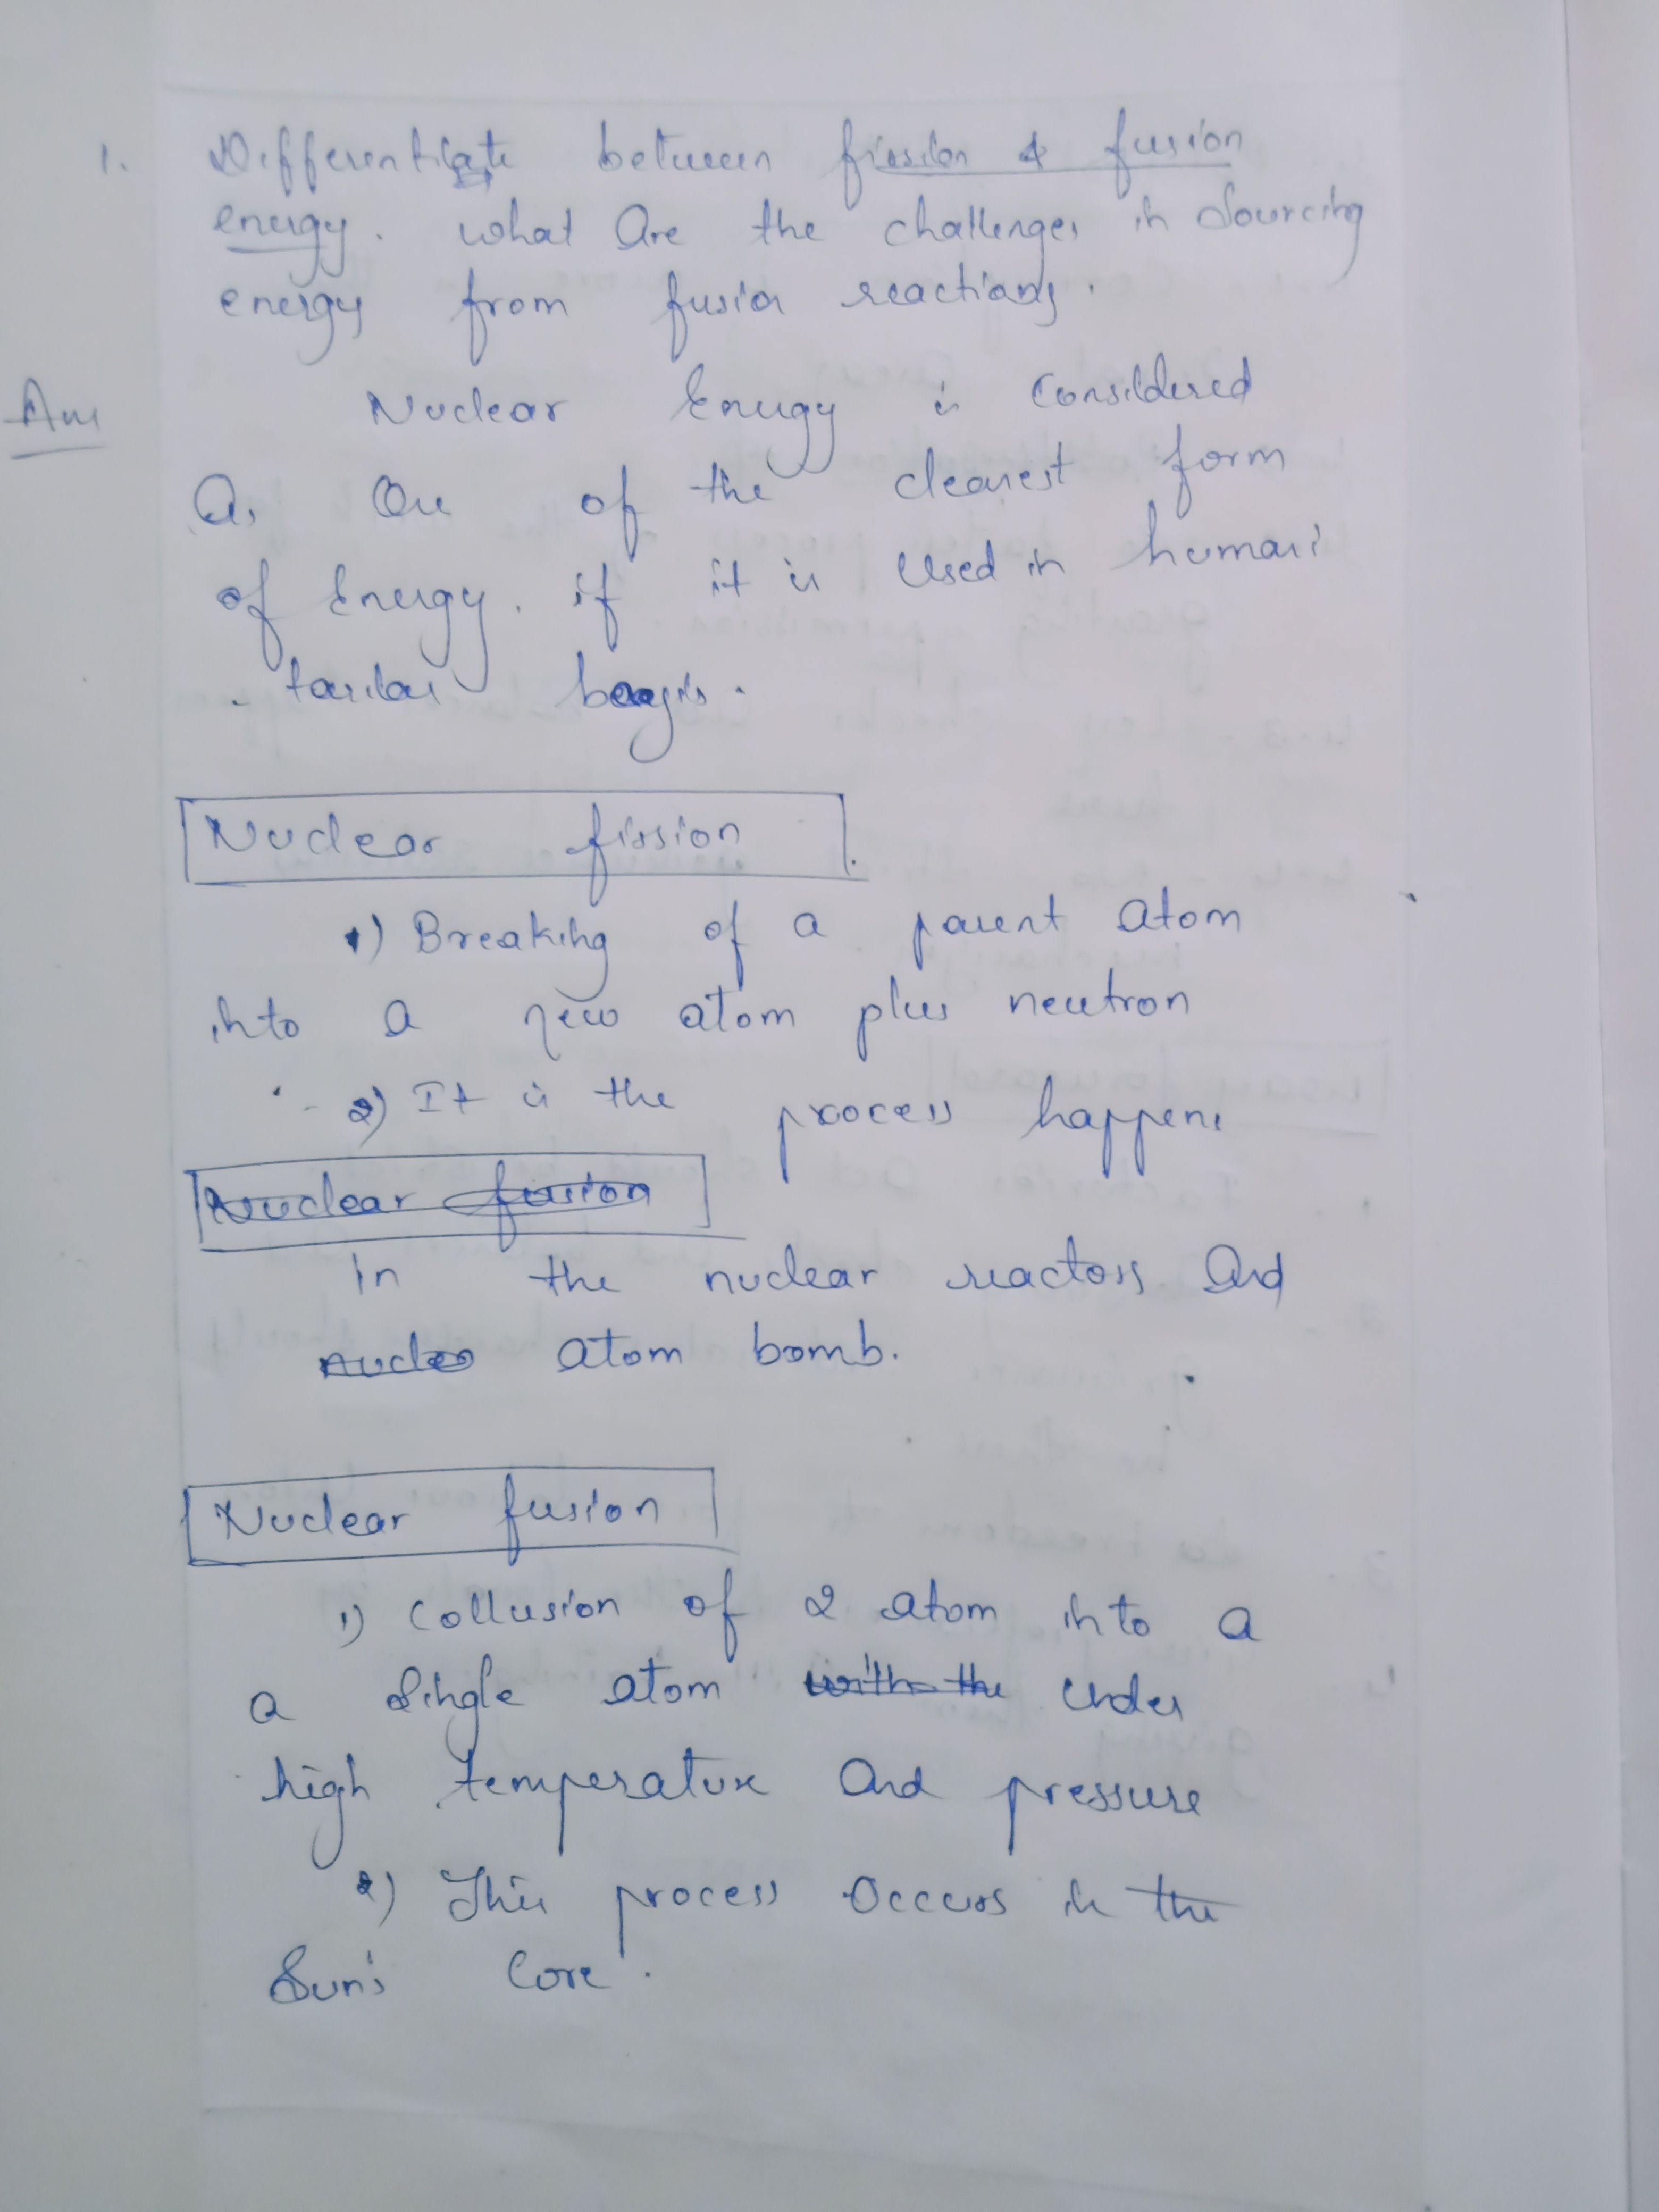 1. Differentiate between fission & fusion
energy. what are the challenges in sourcing
energy from fusion reactions.
Ans Nuclear Energy is considered
as one of the cleanest form
of Energy. if it is used in humani
tarian basis.
Nuclear fission
1) Breaking of a parent atom
into a new atom plus neutron
2) It is the process happens
Nuclear fusion
in the nuclear reactors and
nucleo atom bomb.
Nuclear fusion
1) Collusion of 2 atom into a
a single atom with the under
high temperature and pressure
2) This process occurs in the
Sun's Core.